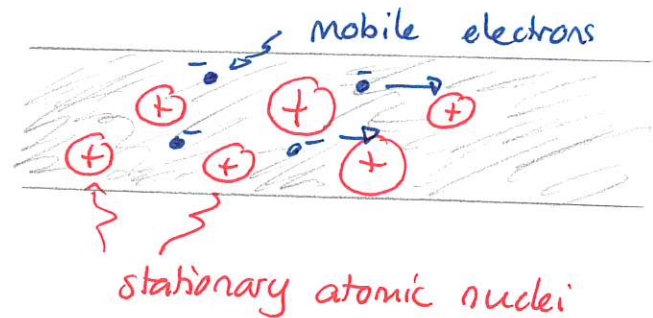 mobile electrons
- -
+ + +
- -
+ + +
stationary atomic nuclei